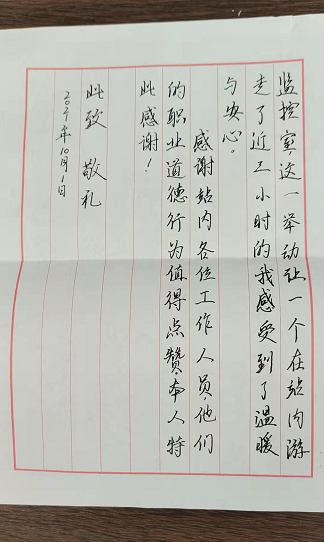 监控室，这一举动让一个在站内游
走了近三小时的我感受到了温暖
与安心。
感谢站内各位工作人员，他们
的职业道德行为值得点赞，本人特
此感谢！
此致 敬礼
10月1日